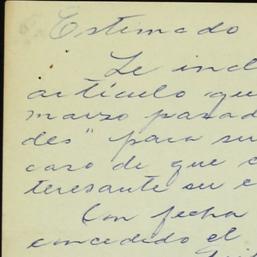 Estimado
Le incl
artículo que
marzo pasad
des" para su
caso de que
teresante su e
Con fecha
concedido el